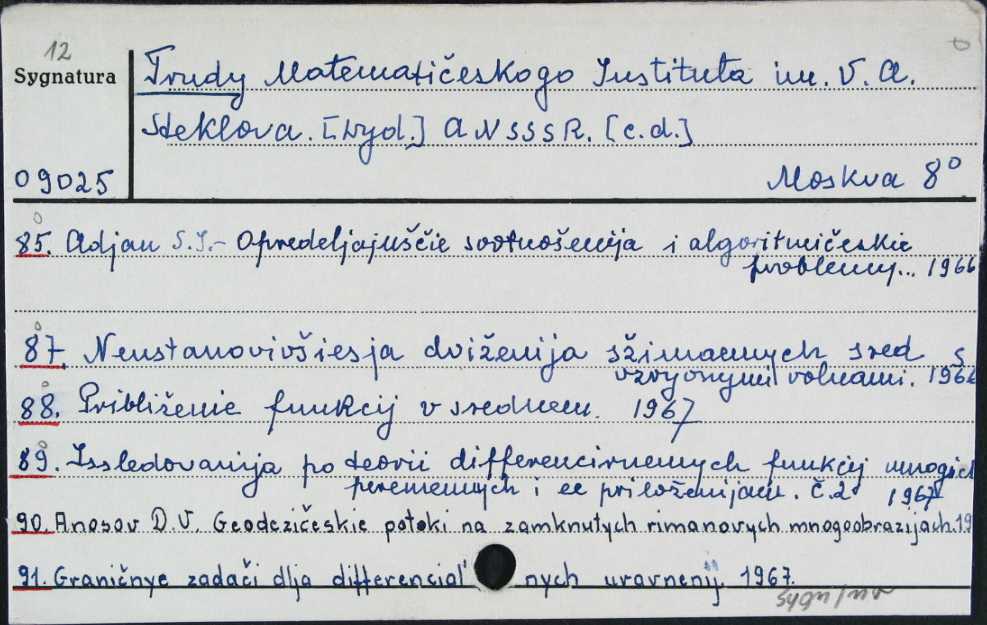 12
Sygnatura
Trudy Matematičeskogo Instituta im. V. A.
Steklova. [Wyd.] AN SSSR. [c.d.]
09025
Moskva 8°
85. Adjan S.I. - Opredeljajuščie sootnošenija i algoritmičeskie
problemy... 1966
87. Neustanovivšiesja dviženija sžimaemych sred s
vzryvnymi volnami. 1966
88. Približenie funkcij v srednem. 1967
89. Issledovanija po teorii differenciruemych funkcij mnogich
peremennych i ee priloženijam. č.2. 1967
90. Anosov D.V. Geodezičeskie potoki na zamknutych rimanovych mnogoobrazijach. 19
91. Graničnye zadači dlja differencial' nych uravnenij. 1967.
sygn/nv